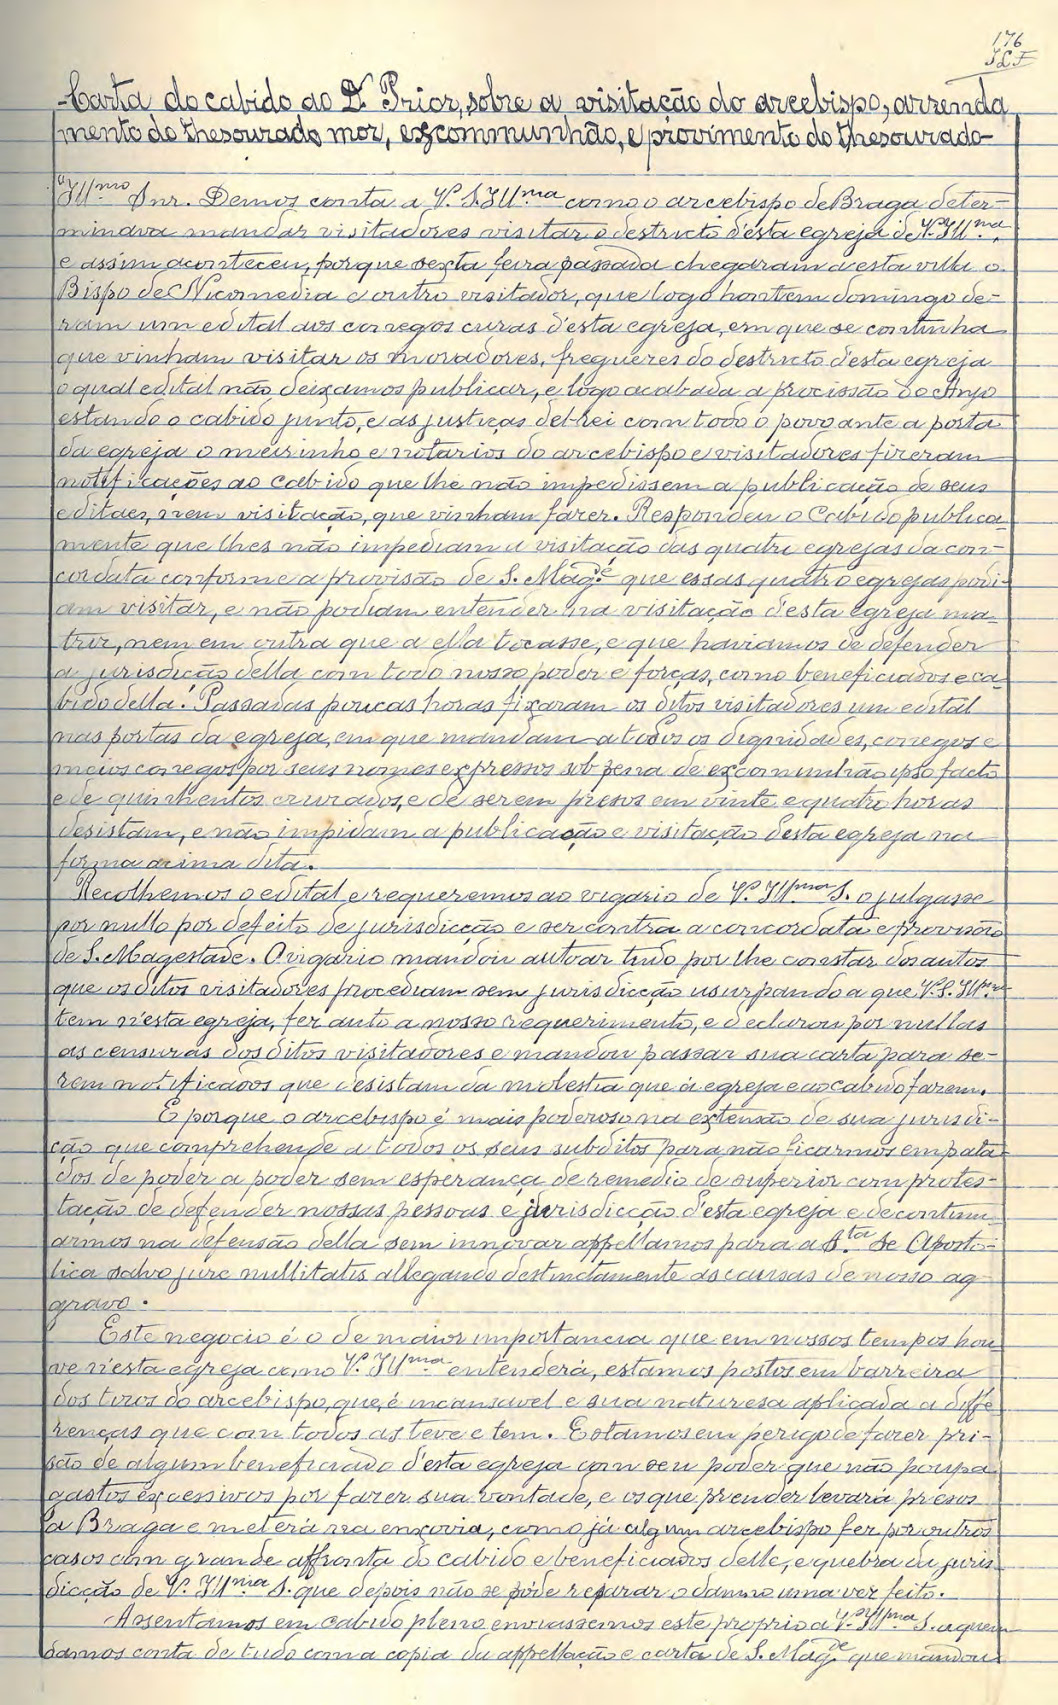 176
-Carta do cabido ao D. Prior, sobre a visitação do arcebispo, arrenda
mento do thesourado mor, excommunhão, e provimento do thesourado-
"Ill.mo Snr. Demos conta a V. S. Ill.ma como o arcebispo de Braga deter-
minava mandar visitadores visitar o destricto d'esta egreja de V. Ill.ma,
e assim aconteceu, porque sexta feira passada chegaram a esta villa o
Bispo de Nicomedia e outro visitador, que logo hontem domingo de-
ram um edital aos conegos curas d'esta egreja, em que se continha
que vinham visitar os moradores, freguezes do destricto d'esta egreja
o qual edital não deixamos publicar, e logo acabada a procissão do Anjo
estando o cabido junto, e as justiças del-rei com todo o povo ante a porta
da egreja o meirinho e notarios do arcebispo e visitadores fizeram
notificações ao cabido que lhe não impedissem a publicação de seus
editaes, nem visitação, que vinham fazer. Respondeu o Cabido publica-
mente que lhes não impediam a visitação das quatro egrejas da con-
cordata conforme a provisão de S. Mag.de que essas quatro egrejas podi-
am visitar, e não podiam entender na visitação d'esta egreja ma-
triz, nem em outra que a ella tocasse, e que haviamos de defender
a jurisdicção della com todo nosso poder e forças, como beneficiados e ca-
bido della. Passadas poucas horas fixaram os ditos visitadores um edital
nas portas da egreja, em que mandam a todos os dignidades, conegos e
meios conegos por seus nomes expressos sob pena de excomunhão ipso facto
e de quinhentos cruzados, e de serem presos em vinte e quatro horas
desistam, e não impidam a publicação e visitação desta egreja na
forma acima dita.
Recolhemos o edital e requeremos ao vigario de V. Ill.ma S. o julgasse
por nullo por defeito de jurisdicção e ser contra a concordata e provisão
de S. Magestade. O vigario mandou autoar tudo por lhe constar dos autos
que os ditos visitadores procediam sem jurisdicção usurpando a que V. S. Ill.ma
tem n'esta egreja, fez auto a nosso requerimento, e declarou por nullas
as censuras dos ditos visitadores e mandou passar sua carta para se-
rem notificados que desistam da molestia que á egreja e ao cabido fazem.
E porque o arcebispo é mais poderoso na extensão de sua jurisdi-
ção que comprehende a todos os seus subditos para não ficarmos empata-
dos de poder a poder sem esperança de remedio de superior com protes-
tação de defender nossas pessoas e jurisdicção d'esta egreja e de continu-
armos na defensão della sem innovar appellamos para a S.ta Se Aposto-
lica salvo jure nullitatis allegando destinctamente as causas de nosso ag-
gravo.
Este negocio é o de maior importancia que em nossos tempos hou-
ve n'esta egreja como V. Ill.ma entenderá, estamos postos em barreira
dos tiros do arcebispo, que, é incansavel e sua natureza aplicada a diffe-
renças que com todos as teve e tem. Estamos em perigo de fazer pri-
são de algum beneficiado d'esta egreja com seu poder que não poupa
gastos excessivos por fazer sua vontade, e os que prender levará presos
a Braga e meterá na enxovia, como já algum arcebispo fez por outros
casos com grande affronta do cabido e beneficiados delle, e quebra da juris-
dicção de V. Ill.ma S. que depois não se póde reparar o damno uma vez feito.
Assentamos em cabido pleno enviassemos este proprio a V. Ill.ma S. a quem
damos conta de tudo com a copia da appellação e carta de S. Mag.de que mandou